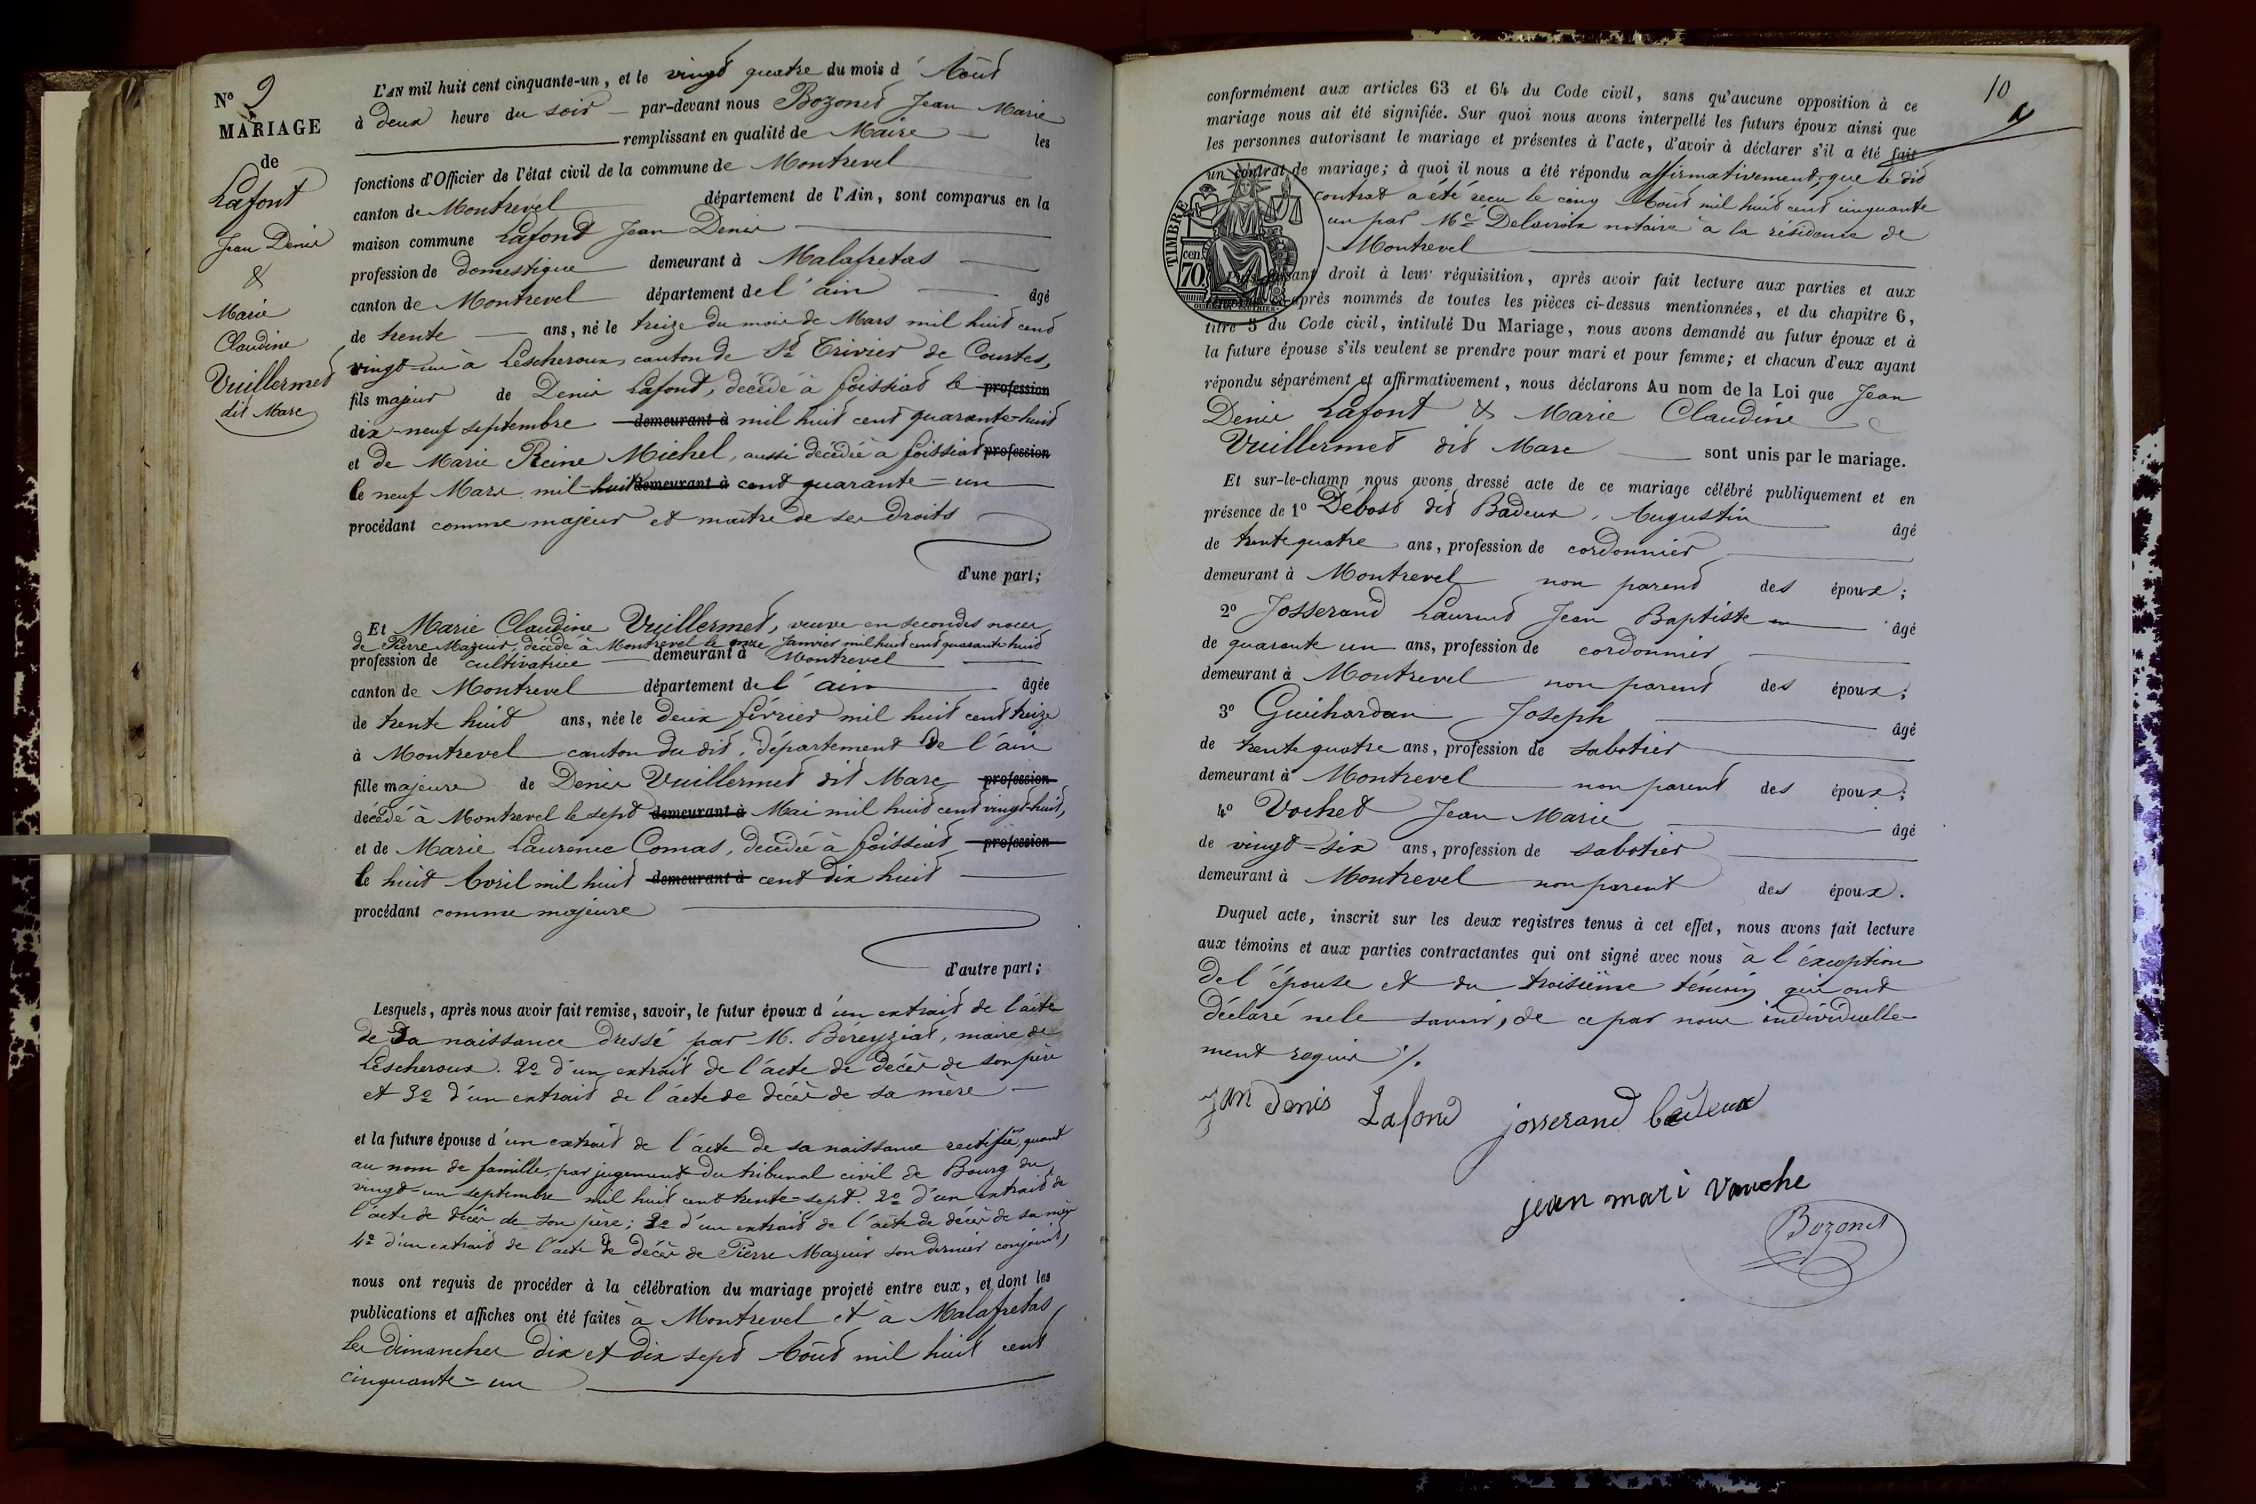 N° 9
MARIAGE
de
Lafont
Jean Denis
&
Marie
Claudine
Vuillermet
dit Marc
L'AN mil huit cent cinquante-un, et le vingt quatre du mois d'Août
à deux heure du soir par-devant nous Bozonet Jean Marie
remplissant en qualité de Maire les
fonctions d'Officier de l'état civil de la commune de Montrevel
canton de Montrevel département de l'Ain, sont comparus en la
maison commune Lafond Jean Denis
profession de domestique demeurant à Malafretas
canton de Montrevel département de l'ain âgé
de trente ans, né le treize du mois de Mars mil huit cent
vingt-un à Lescheroux, canton de St Trivier de Courtes,
fils majeur de Denis Lafont, décédé à foissiat le profession
dix-neuf septembre demeurant à mil huit cent quarante-huit
et de Marie Reine Michel, aussi décédée à foissiat profession
le neuf Mars mil huit demeurant à cent quarante-un
procédant comme majeur et maître de ses droits
d'une part;
Et Marie Claudine Vuillermet, veuve en secondes noces
de Pierre Mazuir, décédé à Montrevel le onze Janvier mil huit cent quarante huit
profession de cultivatrice demeurant à Montrevel
canton de Montrevel département de l'ain âgée
de trente huit ans, née le deux février mil huit cent treize
à Montrevel canton du dit, département de l'ain
fille majeure de Denis Vuillermet dit Marc profession
décédé à Montrevel le sept demeurant à Mai mil huit cent vingt-huit,
et de Marie Laurence Comas, décédée à foissiat profession
le huit Avril mil huit demeurant à cent dix huit
procédant comme majeure
d'autre part;
Lesquels, après nous avoir fait remise, savoir, le futur époux d'un extrait de l'acte
de sa naissance dressé par M. Béreyziat, maire de
Lescheroux. 2° d'un extrait de l'acte de décès de son père
et 3° d'un extrait de l'acte de décès de sa mère
et la future épouse d'un extrait de l'acte de sa naissance rectifié, quant
au nom de famille, par jugement du tribunal civil de Bourg du
vingt-un septembre mil huit cent trente-sept. 2° d'un extrait de
l'acte de décès de son père; 3° d'un extrait de l'acte de décès de sa mère
4° d'un extrait de l'acte de décès de Pierre Mazuir son dernier conjoint,
nous ont requis de procéder à la célébration du mariage projeté entre eux, et dont les
publications et affiches ont été faites à Montrevel et à Malafretas,
les dimanches dix et dix sept Août mil huit cent
cinquante-un
10
conformément aux articles 63 et 64 du Code civil, sans qu'aucune opposition à ce
mariage nous ait été signifiée. Sur quoi nous avons interpellé les futurs époux ainsi que
les personnes autorisant le mariage et présentes à l'acte, d'avoir à déclarer s'il a été fait
un contrat de mariage; à quoi il nous a été répondu affirmativement, que le dit
contrat a été reçu le cinq Août mil huit cent cinquante
un par Me Delacroix notaire à la résidence de
Montrevel
TIMBRE
70 cen.
faisant droit à leur réquisition, après avoir fait lecture aux parties et aux
ci-après nommés de toutes les pièces ci-dessus mentionnées, et du chapitre 6,
titre 5 du Code civil, intitulé Du Mariage, nous avons demandé au futur époux et à
la future épouse s'ils veulent se prendre pour mari et pour femme; et chacun d'eux ayant
répondu séparément et affirmativement, nous déclarons Au nom de la Loi que Jean
Denis Lafont & Marie Claudine
Vuillermet dit Marc sont unis par le mariage.
Et sur-le-champ nous avons dressé acte de ce mariage célébré publiquement et en
présence de 1° Débost dit Badeux, Augustin âgé
de trente quatre ans, profession de cordonnier
demeurant à Montrevel non parent des époux;
2° Josserand Laurent Jean Baptiste âgé
de quarante un ans, profession de cordonnier
demeurant à Montrevel non parent des époux;
3° Guichardan Joseph âgé
de trente quatre ans, profession de sabotier
demeurant à Montrevel non parent des époux;
4° Vochet Jean Marie âgé
de vingt-six ans, profession de sabotier
demeurant à Montrevel non parent des époux.
Duquel acte, inscrit sur les deux registres tenus à cet effet, nous avons fait lecture
aux témoins et aux parties contractantes qui ont signé avec nous à l'éxception
de l'épouse et du troisième témoin qui ont
déclaré ne le savoir, de ce par nous individuelle-
ment requis ./.
jan denis Lafond josserand badeux
jean mari vauche
Bozonet